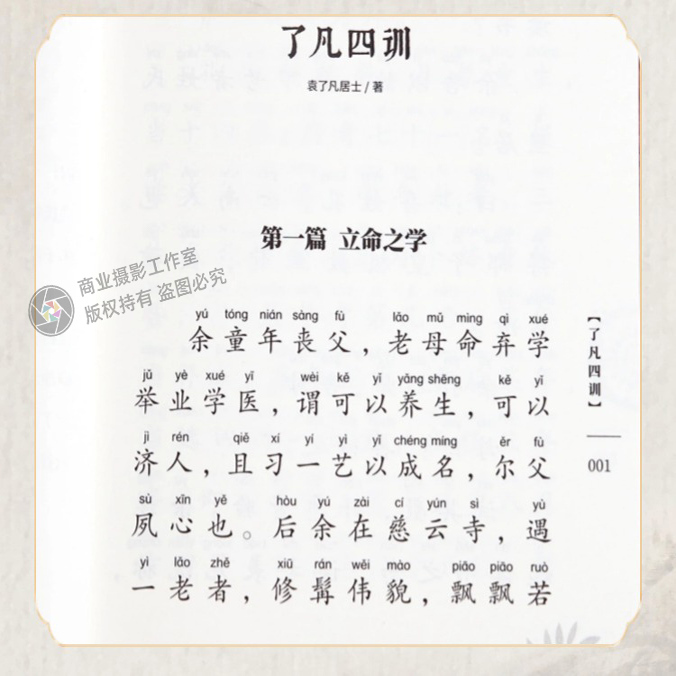 了凡四训
袁了凡居士/著
第一篇 立命之学
商业摄影工作室
版权持有 盗图必究
yú tóng nián sàng fù lǎo mǔ mìng qì xué
余童年丧父，老母命弃学
jǔ yè xué yī wèi kě yǐ yǎng shēng kě yǐ
举业学医，谓可以养生，可以
jì rén qiě xí yí yì yǐ chéng míng ěr fù
济人，且习一艺以成名，尔父
sù xīn yě hòu yú zài cí yún sì yù
夙心也。后余在慈云寺，遇
yì lǎo zhě xiū rán wěi mào piāo piāo ruò
一老者，修髯伟貌，飘飘若
【了凡四训】
001